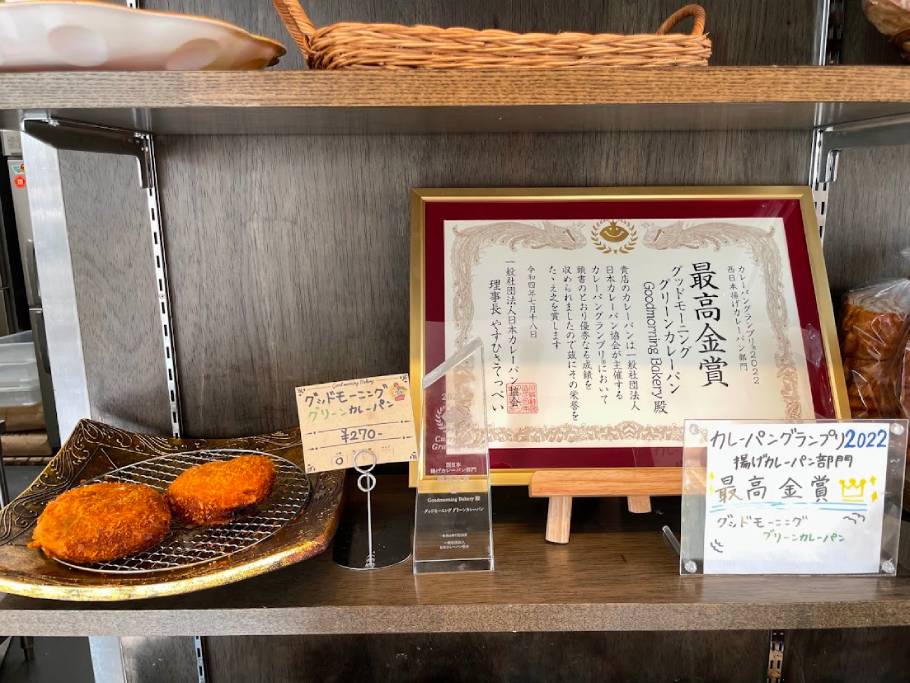 Goodmorning Bakery
グッドモーニング
グリーンカレーパン
¥270-
西日本
揚げカレーパン部門
Goodmorning Bakery 殿
グッドモーニング グリーンカレーパン
カレーパングランプリ®2022
西日本揚げカレーパン部門
最高金賞
グッドモーニング
グリーンカレーパン
Goodmorning Bakery 殿
貴店のカレーパンは一般社団法人
日本カレーパン協会が主催する
カレーパングランプリ®において
頭書のとおり優秀なる成績を
収められましたので茲にその栄誉を
たゝえ之を賞します
令和四年七月十八日
一般社団法人日本カレーパン協会
理事長 やすひさてっぺい
カレーパングランプリ2022
揚げカレーパン部門
最高金賞
グッドモーニング
グリーンカレーパン